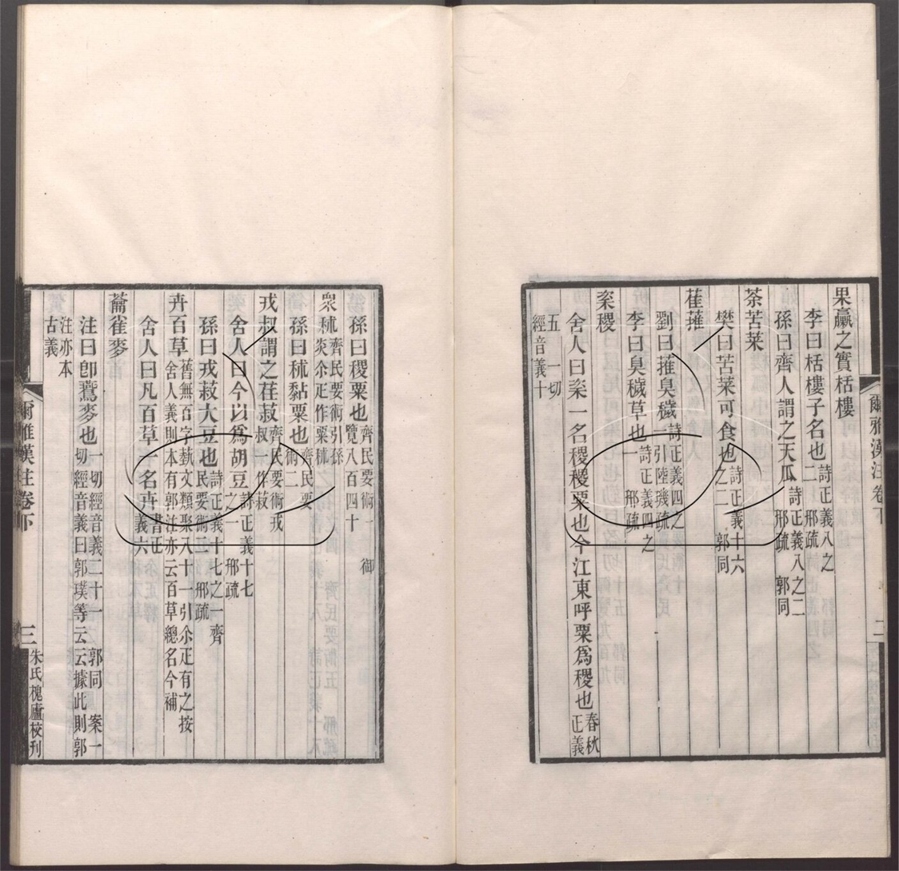 果臝之實栝樓
李曰栝樓子名也詩正義八之二 邢疏
孫曰齊人謂之天瓜詩正義八之二 邢疏 郭同
荼苦菜
樊曰苦菜可食也詩正義十六之二 郭同
萑蓷
劉曰蓷臭穢詩正義四之一引陸璣疏
李曰臭穢草也詩正義四之一 邢疏
粢稷
舍人曰粢一名稷稷粟也今江東呼粟爲稷也春秋正義
五 一切經音義十
爾雅漢注卷下
二
孫曰稷粟也齊民要術一 御覽八百四十
衆秫齊民要術引孫炎尒疋作粟秫
孫曰秫黏粟也齊民要術二
戎叔謂之荏菽齊民要術戎叔一作菽
舍人曰今以爲胡豆詩正義十七之一 邢疏
孫曰戎菽大豆也詩正義十七之一 齊民要術二 邢疏
卉百草舊無百字蓺文類聚八十一引尒疋有之按舍人義則本有郭注亦云百草總名今補
舍人曰凡百草一名卉書正義六
蘥雀麥
注曰卽鷰麥也一切經音義二十一 郭同 案一切經音義曰郭璞等云云據此則郭
注亦本古義
爾雅漢注卷下
三
朱氏槐廬校刋